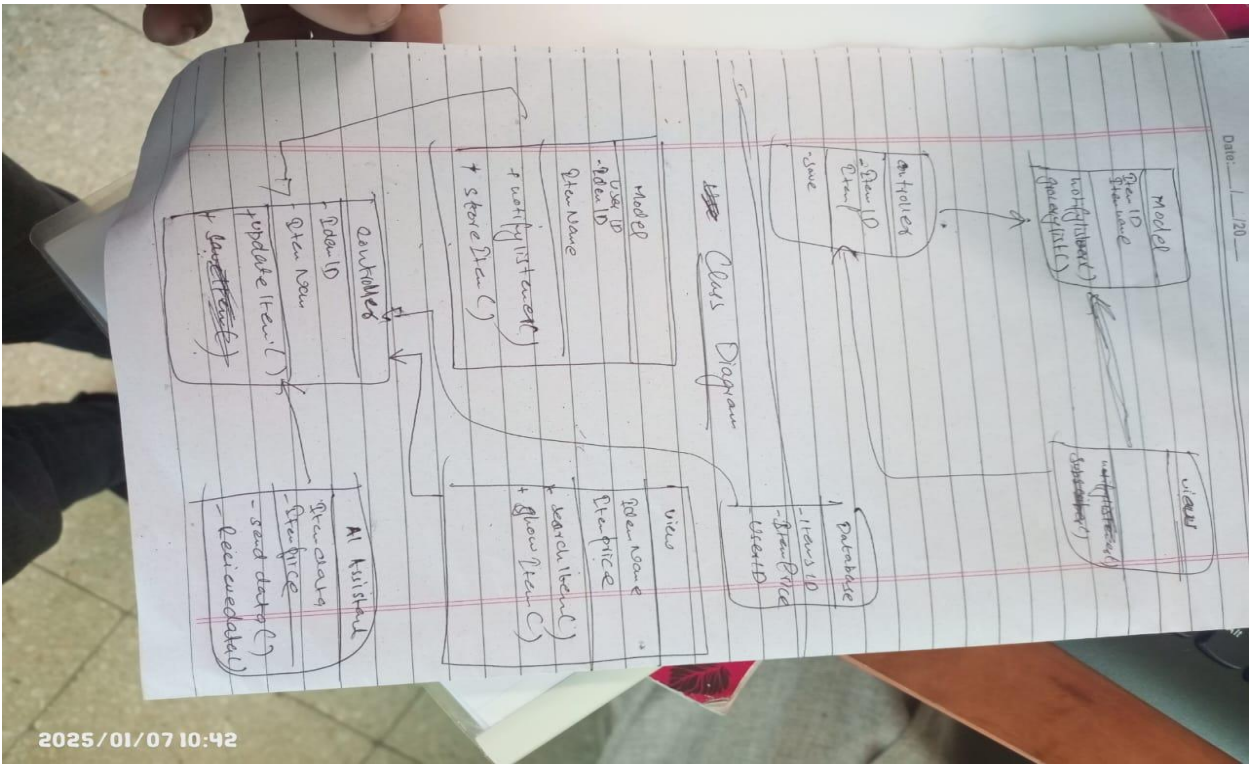 Date: __/__/20__
Model
Item ID
Item name
notifylistener()
grocerylist()
view
subscriber()
controller
- Item ID
Item
- save
Database
- Items ID
- Item Price
User ID
Class Diagram
Model
User ID
- Idem ID
Item Name
+ notifylistener()
+ storeItem()
View
Idem Name
Item price
+ search item()
+ show Item()
controller
- Idem ID
Item Nam
+ update Item()
+ saveItem()
AI Assistant
Item data
- Item price
- send data()
- Recievedata()
2025/01/07 10:42